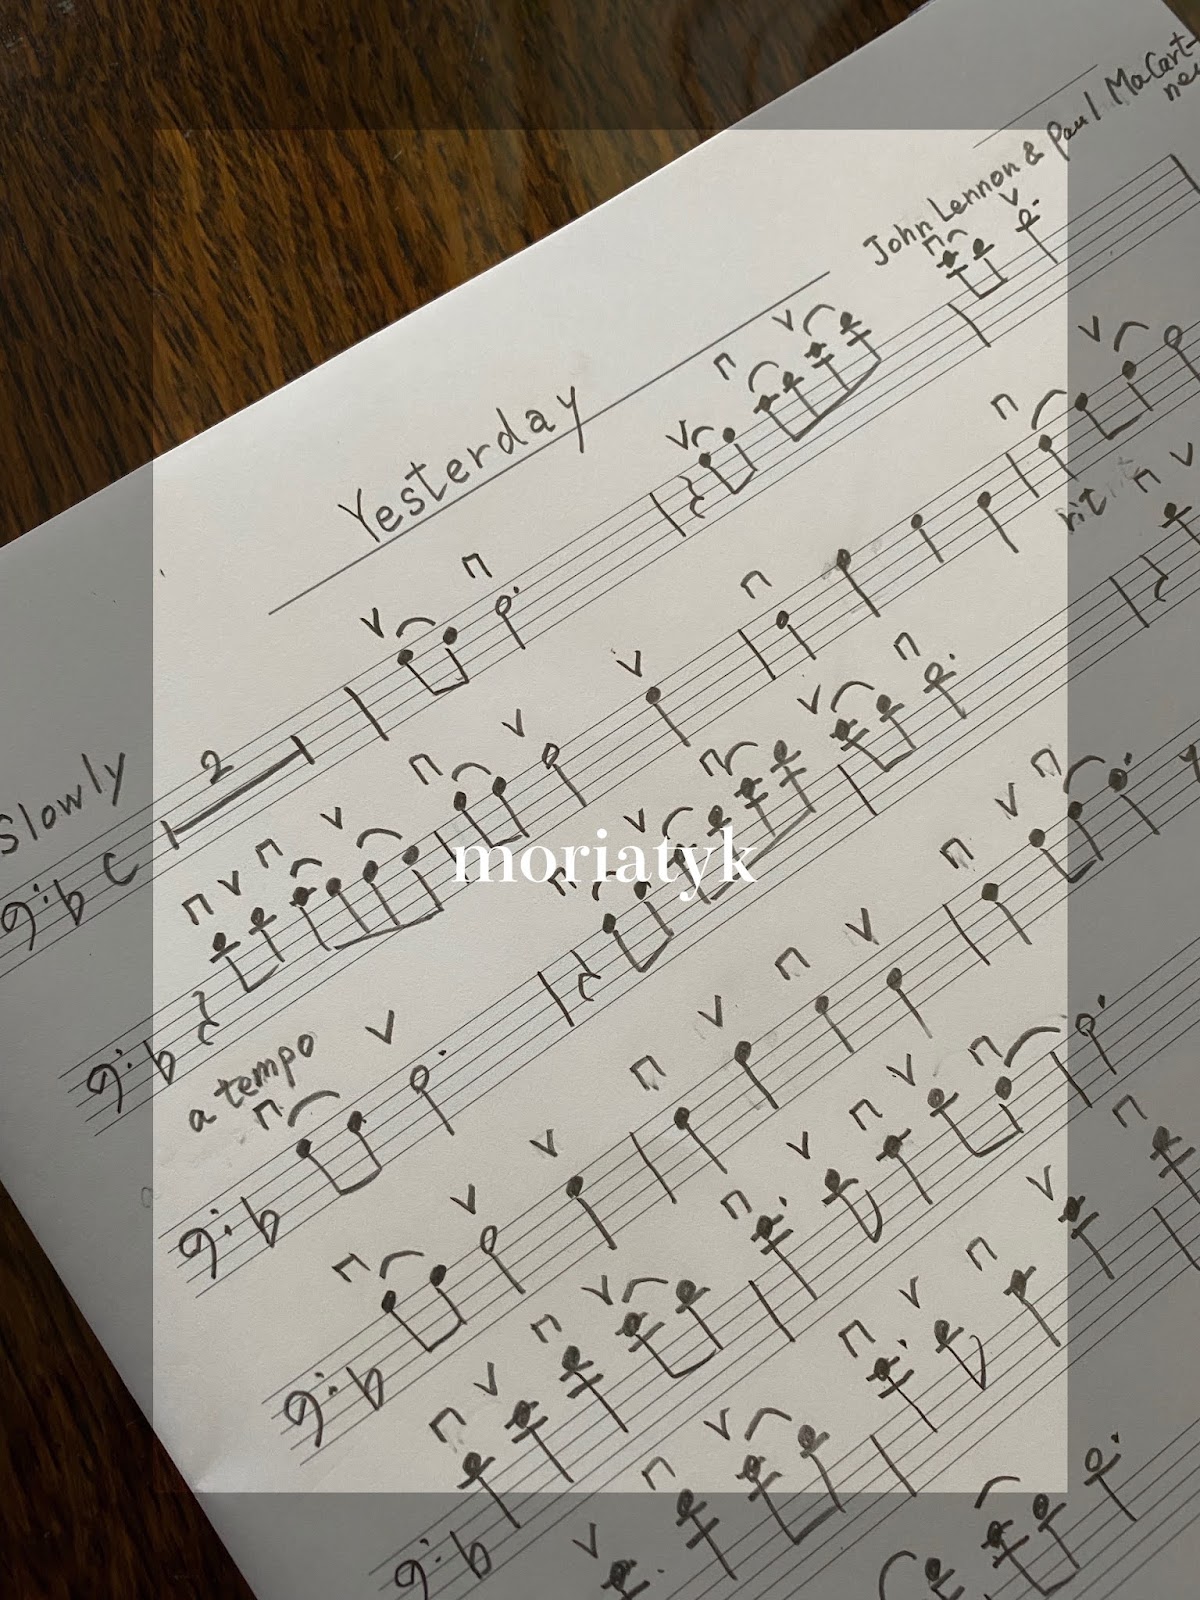 John Lennon & Paul MaCart-
ney
Yesterday
Slowly
2
rit
a tempo
moriatyk